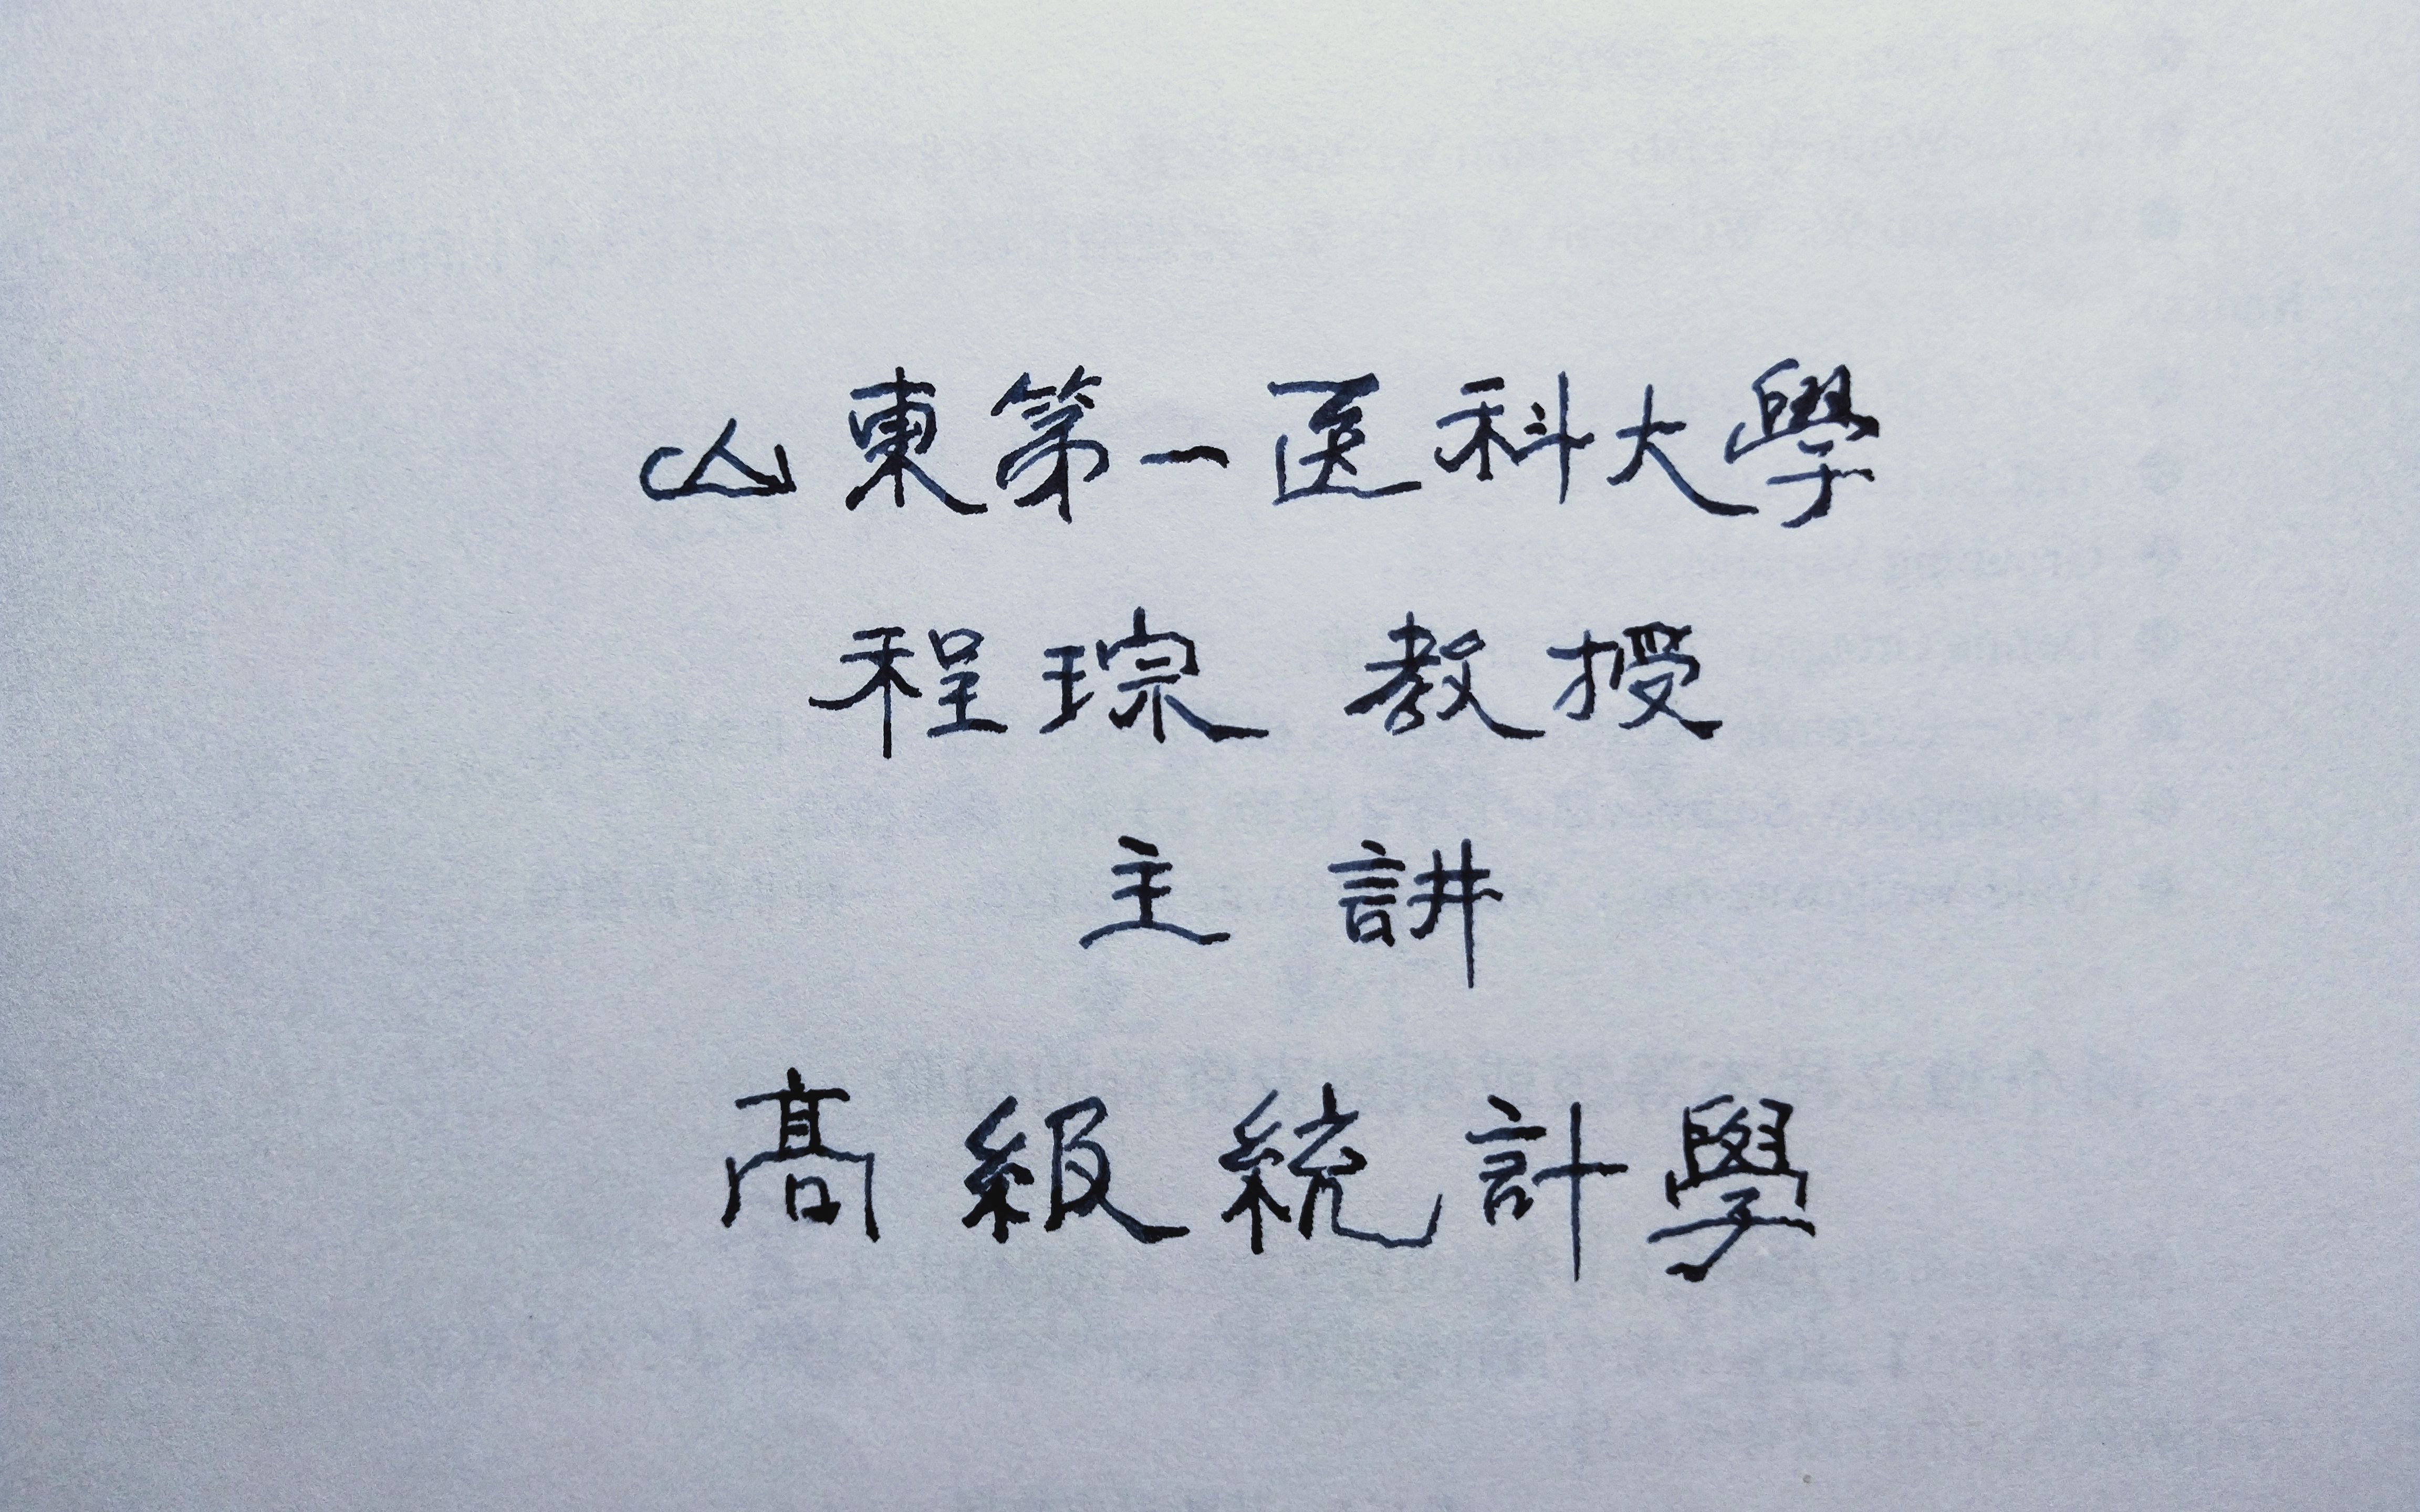 山東第一医科大學
程琮 教授
主 講
高級統計學